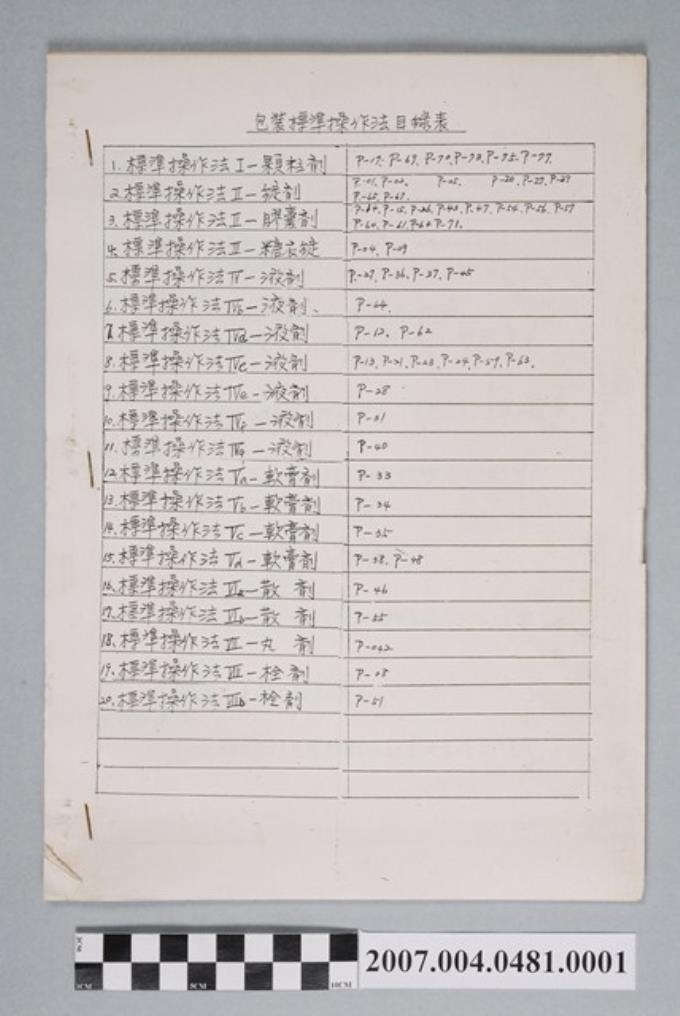 包裝標準操作法目錄表
1. 標準操作法 I－顆粒劑 P-17. P-69. P-70. P-73. P-75. P-77.
2. 標準操作法 II－錠劑 P-01. P-02. P-05. P-20. P-29.
P-65. P-67.
3. 標準操作法 II－膠囊劑 P-15. P-26. P-43. P-47. P-54. P-56. P-57
P-60. P-61. P-64. P-71.
4. 標準操作法 II－糖衣錠 P-04. P-09
5. 標準操作法 IV－液劑 P-27. P-36. P-37. P-45
6. 標準操作法 IVb－液劑、 P-64.
7. 標準操作法 IVd－液劑 P-12. P-62
8. 標準操作法 IVc－液劑 P-13. P-21. P-23. P-24. P-59. P-63.
9. 標準操作法 IVe－液劑 P-28
10. 標準操作法 IVf－液劑 P-31
11. 標準操作法 液劑 P-40
12. 標準操作法 Va－軟膏劑 P-33
13. 標準操作法 Vb－軟膏劑 P-34
14. 標準操作法 Vc－軟膏劑 P-35
15. 標準操作法 Vd－軟膏劑 P-38. P-48
16. 標準操作法 VIa－散 劑 P-46
17. 標準操作法 VIb－散 劑 P-55
18. 標準操作法 VII－丸 劑 P-042
19. 標準操作法 VIII－栓劑 P-08
20. 標準操作法 VIIIb－栓劑 P-51
3CM
0CM
5CM
10CM
2007.004.0481.0001